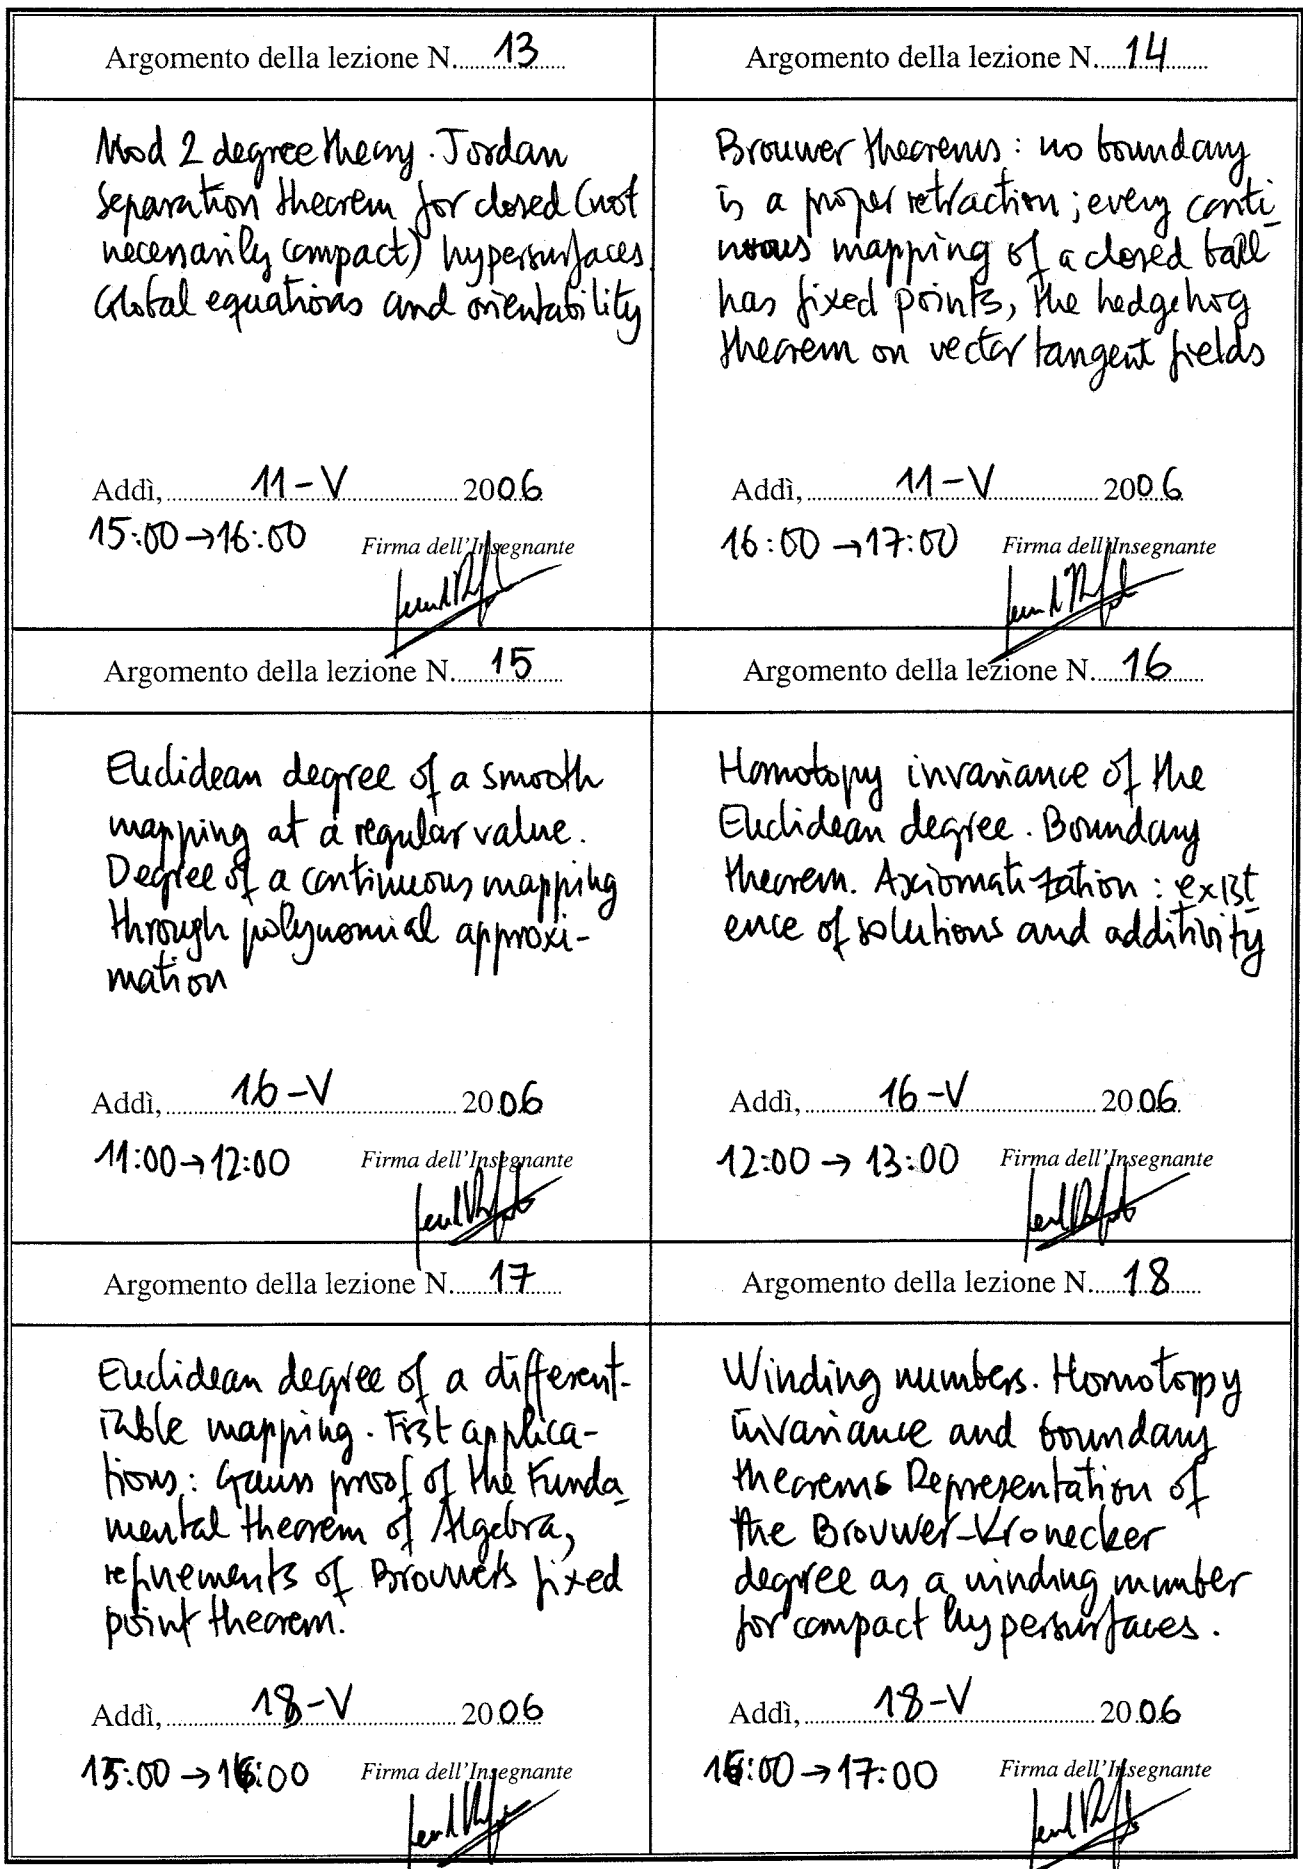 Argomento della lezione N. 13
Mod 2 degree theory. Jordan
separation theorem for closed (not
necessarily compact) hypersurfaces
Global equations and orientability
Addì, 11-V 2006
15:00→16:00 Firma dell'Insegnante
Argomento della lezione N. 14
Brouwer theorems: no boundary
is a proper retraction; every conti-
nuous mapping of a closed ball
has fixed points, the hedgehog
theorem on vector tangent fields
Addì, 11-V 2006
16:00→17:00 Firma dell'Insegnante
Argomento della lezione N. 15
Euclidean degree of a smooth
mapping at a regular value.
Degree of a continuous mapping
through polynomial approxi-
mation
Addì, 16-V 2006
11:00→12:00 Firma dell'Insegnante
Argomento della lezione N. 16
Homotopy invariance of the
Euclidean degree. Boundary
theorem. Axiomatization: exist-
ence of solutions and additivity
Addì, 16-V 2006
12:00→13:00 Firma dell'Insegnante
Argomento della lezione N. 17
Euclidean degree of a different-
iable mapping. First applica-
tions: Gauss proof of the Funda-
mental theorem of Algebra,
refinements of Brouwer's fixed
point theorem.
Addì, 18-V 2006
15:00→16:00 Firma dell'Insegnante
Argomento della lezione N. 18
Winding numbers. Homotopy
invariance and boundary
theorems Representation of
the Brouwer-Kronecker
degree as a winding number
for compact hypersurfaces.
Addì, 18-V 2006
16:00→17:00 Firma dell'Insegnante